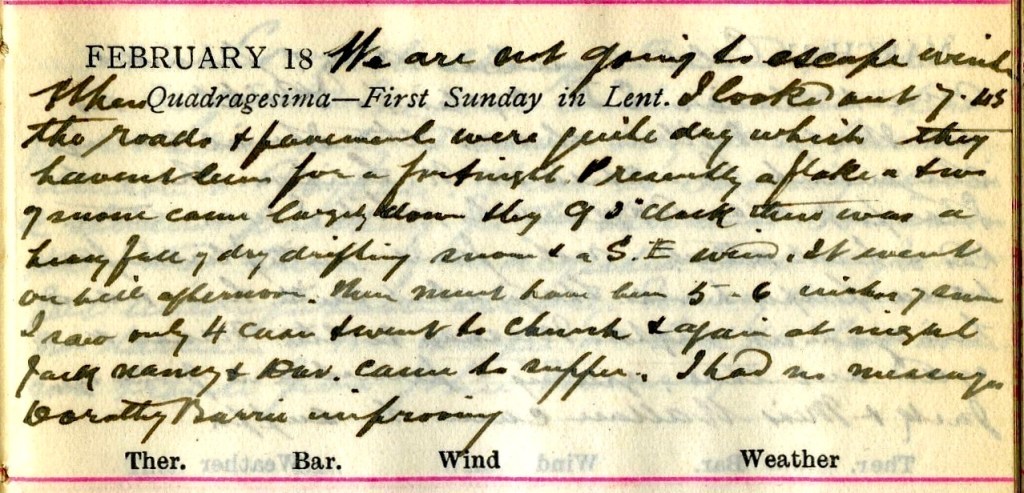 FEBRUARY 18 We are not going to escape winter
Quadragesima—First Sunday in Lent. I looked out 7.45
the roads & pavements were quite dry which they
havent been for a fortnight. Presently a flake or two
of snow came down by 9 o'clock there was a
heavy fall of dry drifting snow & a S.E wind. It went
on till afternoon. There must have been 5-6 inches of snow
I saw only 4 cases & went to church & again at night
Jack Nancy & came to supper. I had no messages
Dorothy Barrie improving
Ther. Bar. Wind Weather